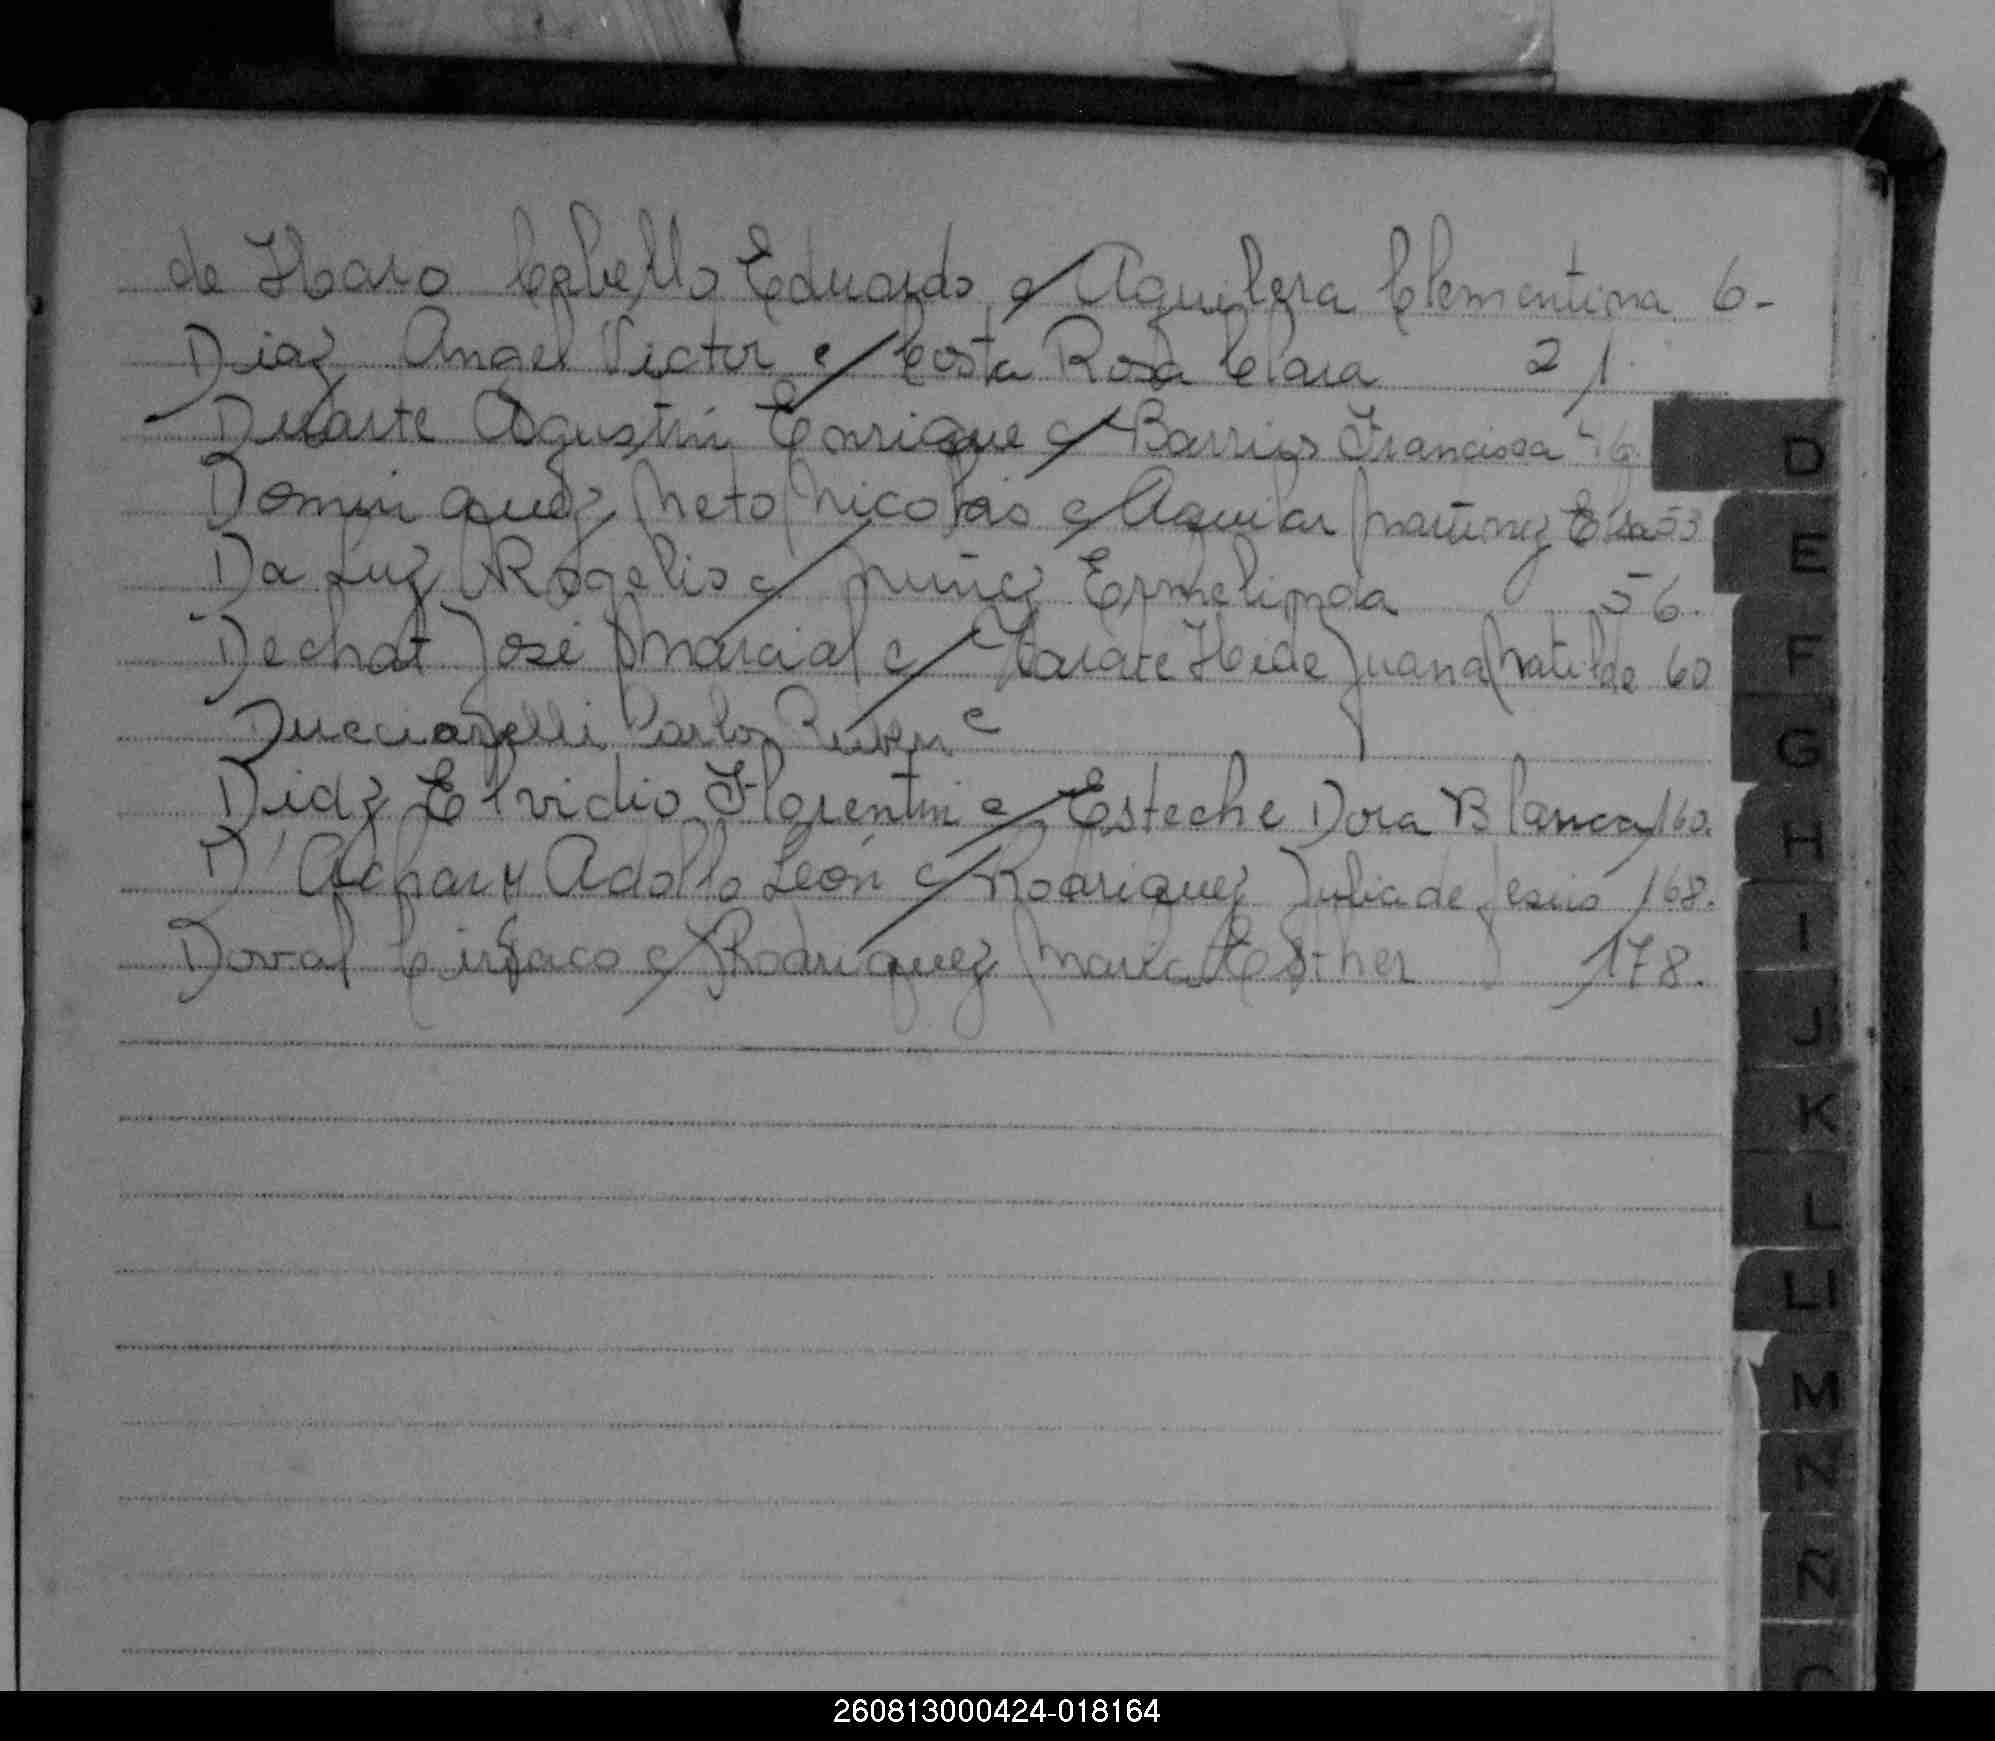 de Haro Cabello Eduardo c/ Aguilera Clementina 6-
Diaz Angel Victor c/ Costa Rosa Clara 21.
Duarte Agustin Enrique c/ Barrios Francisca 46.
Dominguez Neto Nicolas c/ Aguilar Martinez Elsa 53
Da Luz Rogelio c/ Nuñez Ermelinda 56.
Dechat José Marcial c/ Juana Matilde 60
Carlos Ruben c
Diaz Elvidio Florentin c/ Esteche Dora Blanca 160.
D'Achary Adolfo León c/ Rodriguez Julia de Jesus 168.
Doval Ciriaco c/ Rodriguez Maria Esther 178.
D
E
F
G
H
I
J
K
L
Ll
M
N
Ñ
260813000424-018164